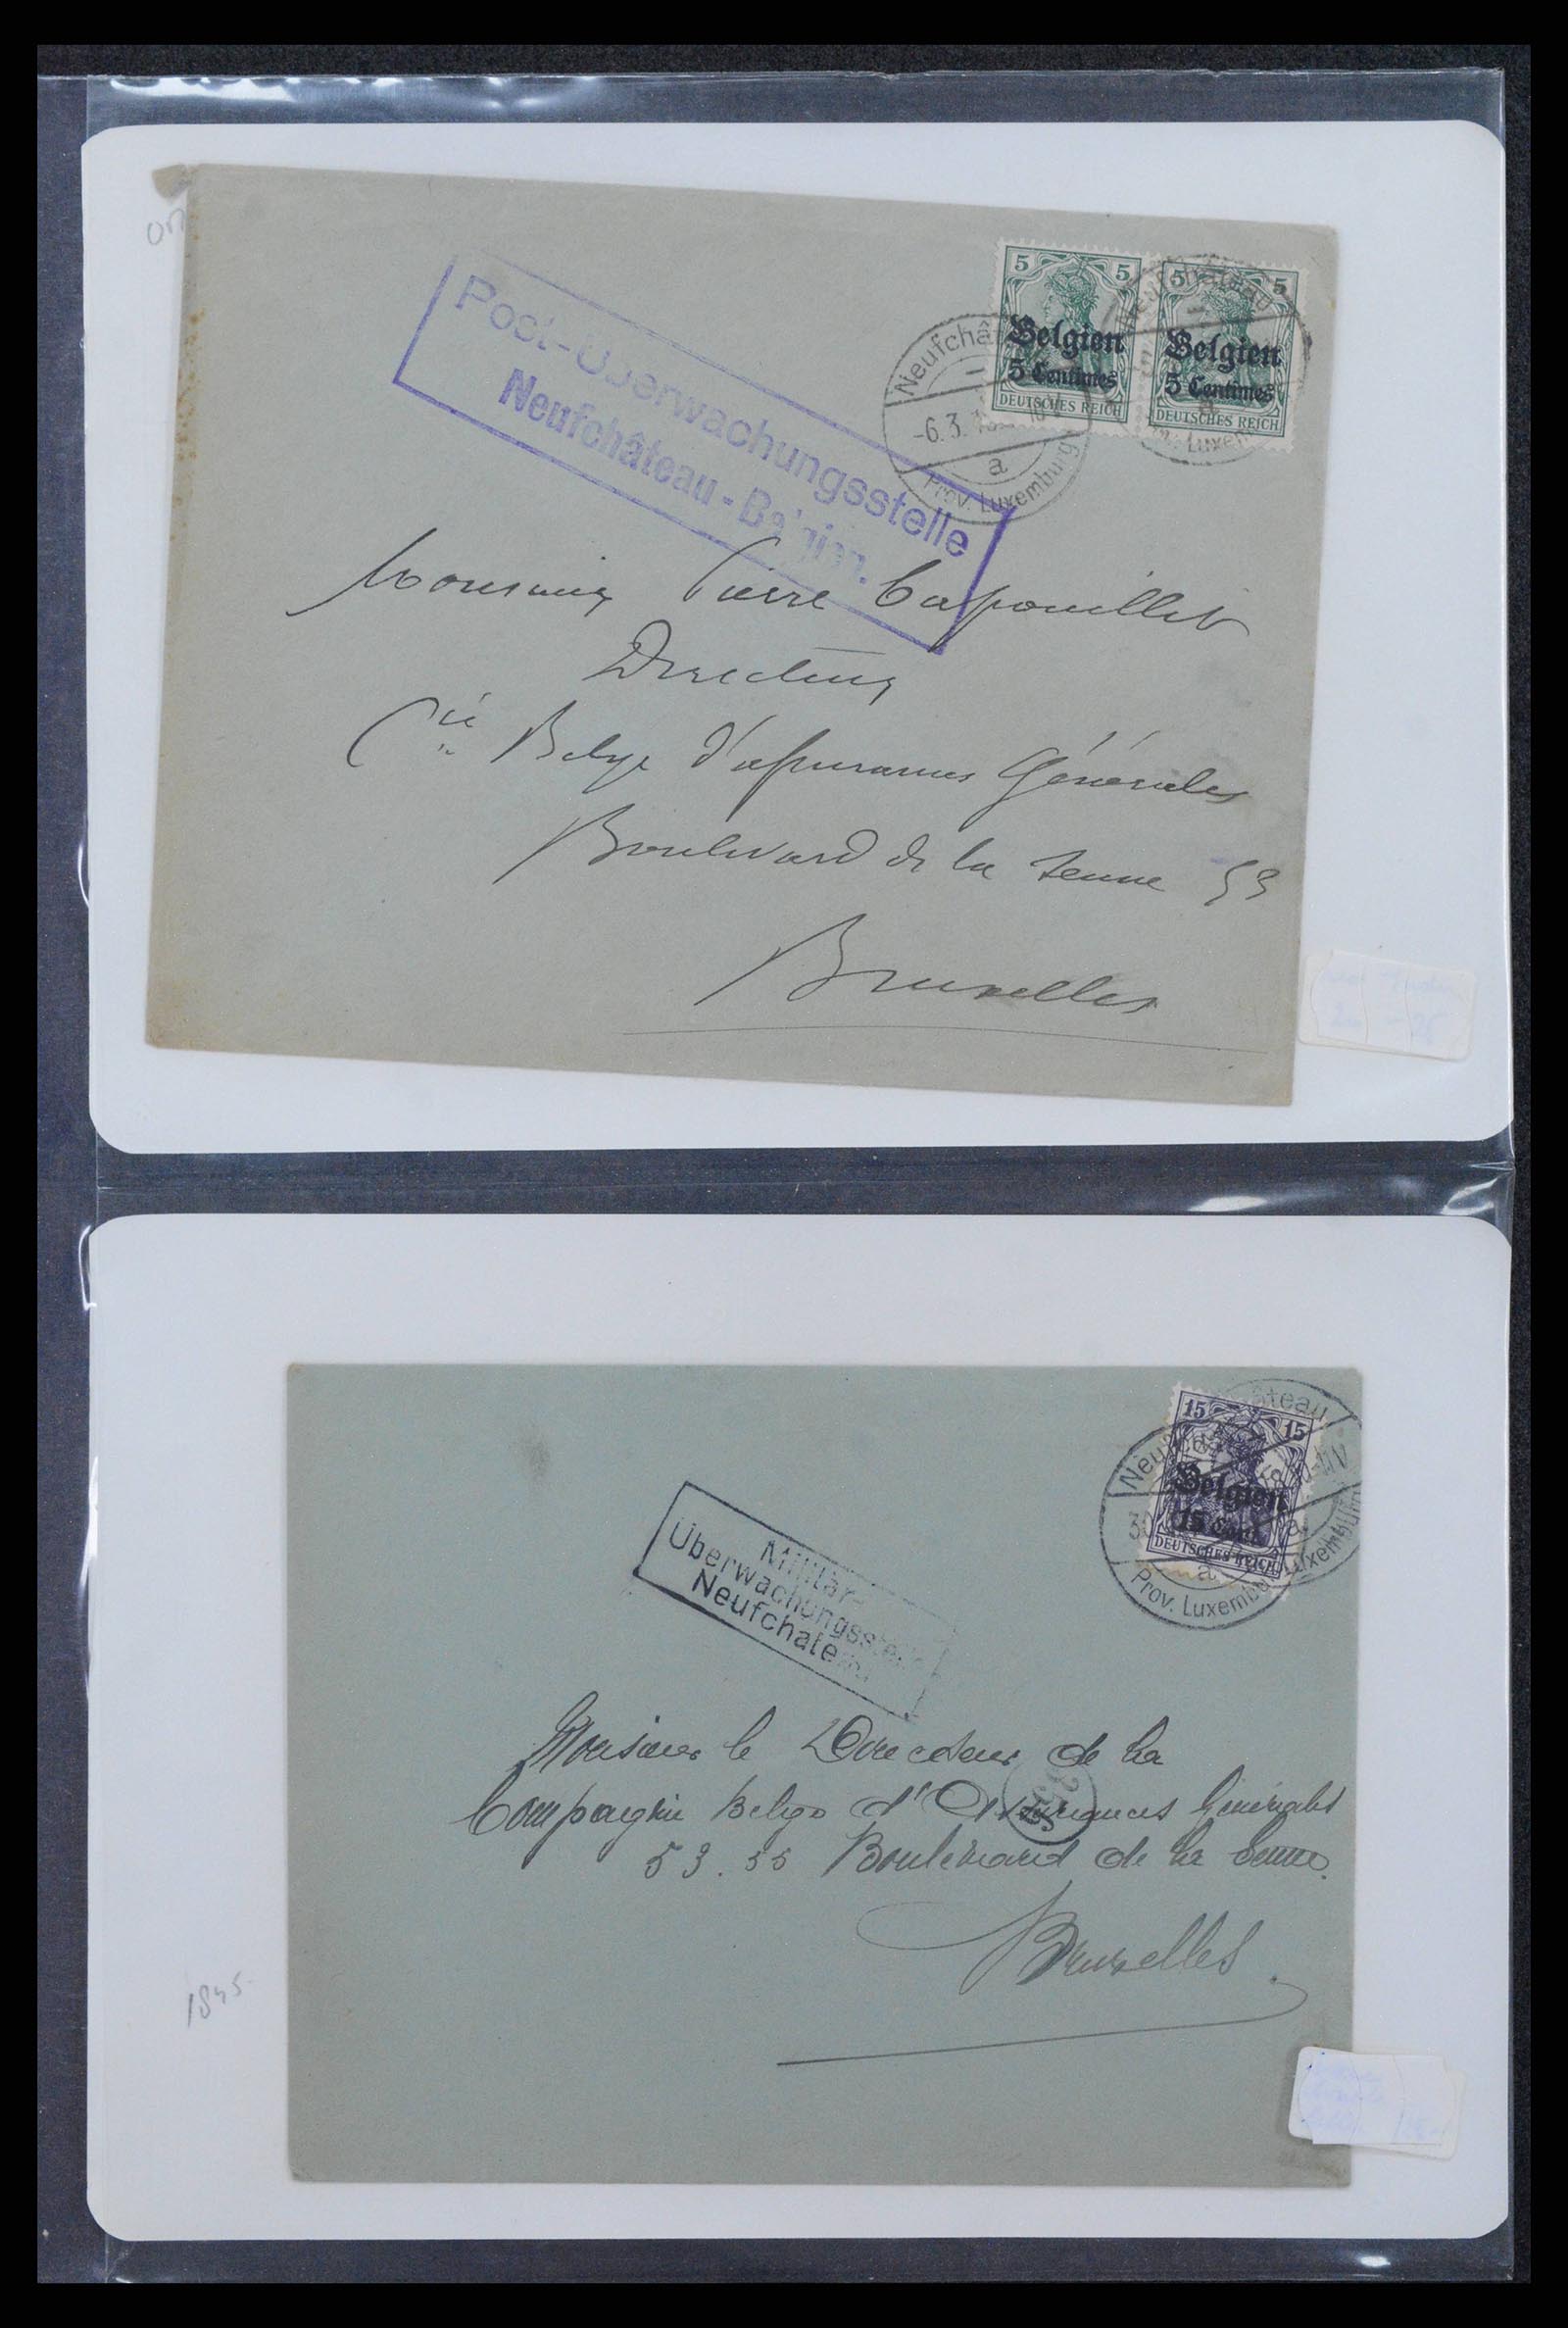 5 5
Belgien
5 Centimes
DEUTSCHES REICH
5 5
Belgien
5 Centimes
DEUTSCHES REICH
-6.3.
a
Prov. Luxemburg
Post-Überwachungsstelle
Neufchâteau-Belgien.
Monsieur Pierre Capouillet
Directeur
Cie Belge d'assurances Générales
Boulevard de la Senne 53
Bruxelles
15 15
Belgien
15 Cent.
DEUTSCHES REICH
a
Prov. Luxemburg
Militär-
Überwachungsstelle
Neufchateau
Monsieur le Directeur de la
Compagnie Belge d'Assurances Générales
53.55 Boulevard de la Senne.
Bruxelles
1845